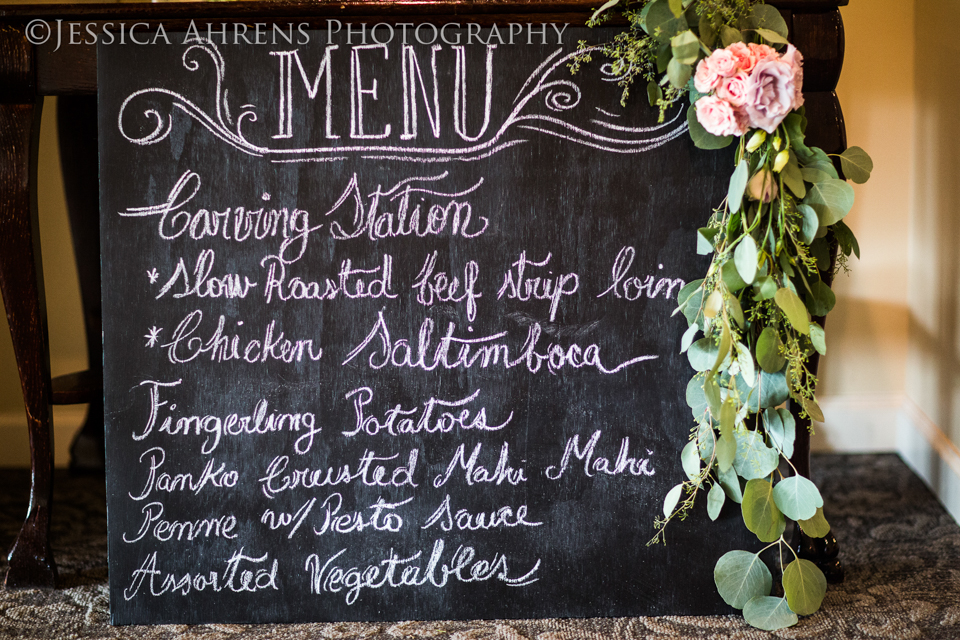 ©Jessica Ahrens Photography
MENU
Carving Station
*Slow Roasted beef strip loin
*Chicken Saltimboca
Fingerling Potatoes
Panko Crusted Mahi Mahi
Penne w/ Pesto Sauce
Assorted Vegetables